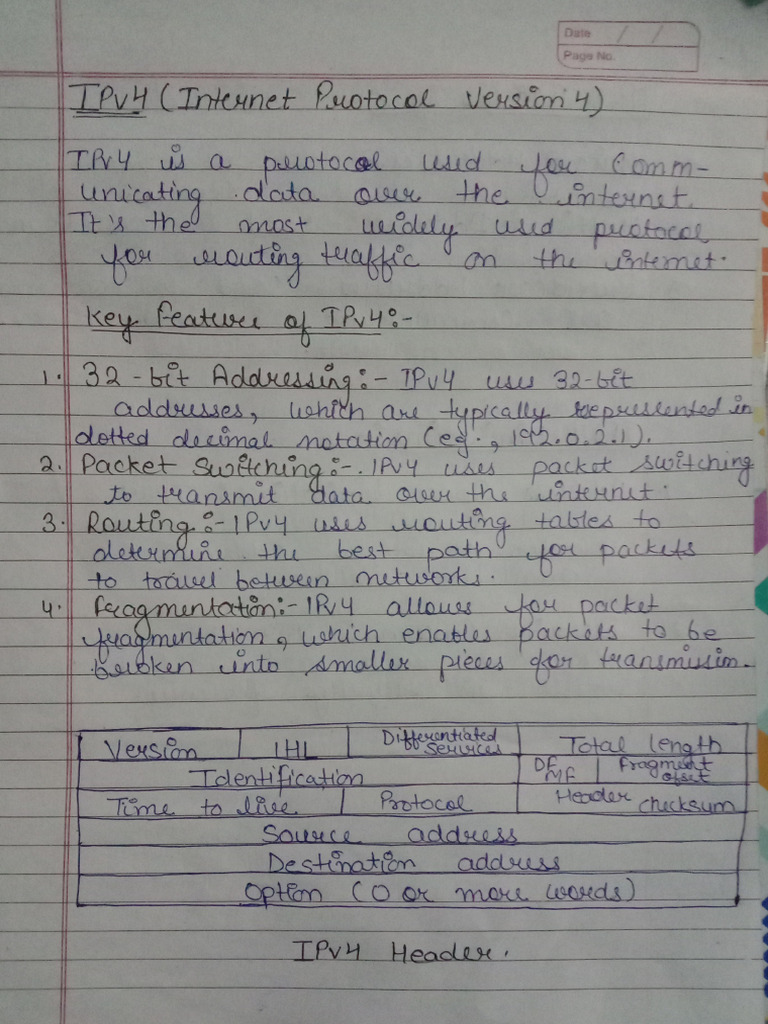 Date / /
Page No.
IPv4 (Internet Protocol Version 4)
IPv4 is a protocol used for Comm-
unicating data over the internet.
It's the most widely used protocol
for routing traffic on the internet.
Key Feature of IPv4:-
1. 32-bit Addressing:- IPv4 uses 32-bit
addresses, which are typically represented in
dotted decimal notation (eg., 192.0.2.1).
2. Packet Switching:-. IPv4 uses packet switching
to transmit data over the internet.
3. Routing:- IPv4 uses routing tables to
determine the best path for packets
to travel between networks.
4. Fragmentation:- IPv4 allows for packet
fragmentation, which enables packets to be
broken into smaller pieces for transmission.
Version IHL Differentiated Services Total length
Identification DF MF Fragment offset
Time to live Protocol Header checksum
Source address
Destination address
Option (0 or more words)
IPv4 Header.